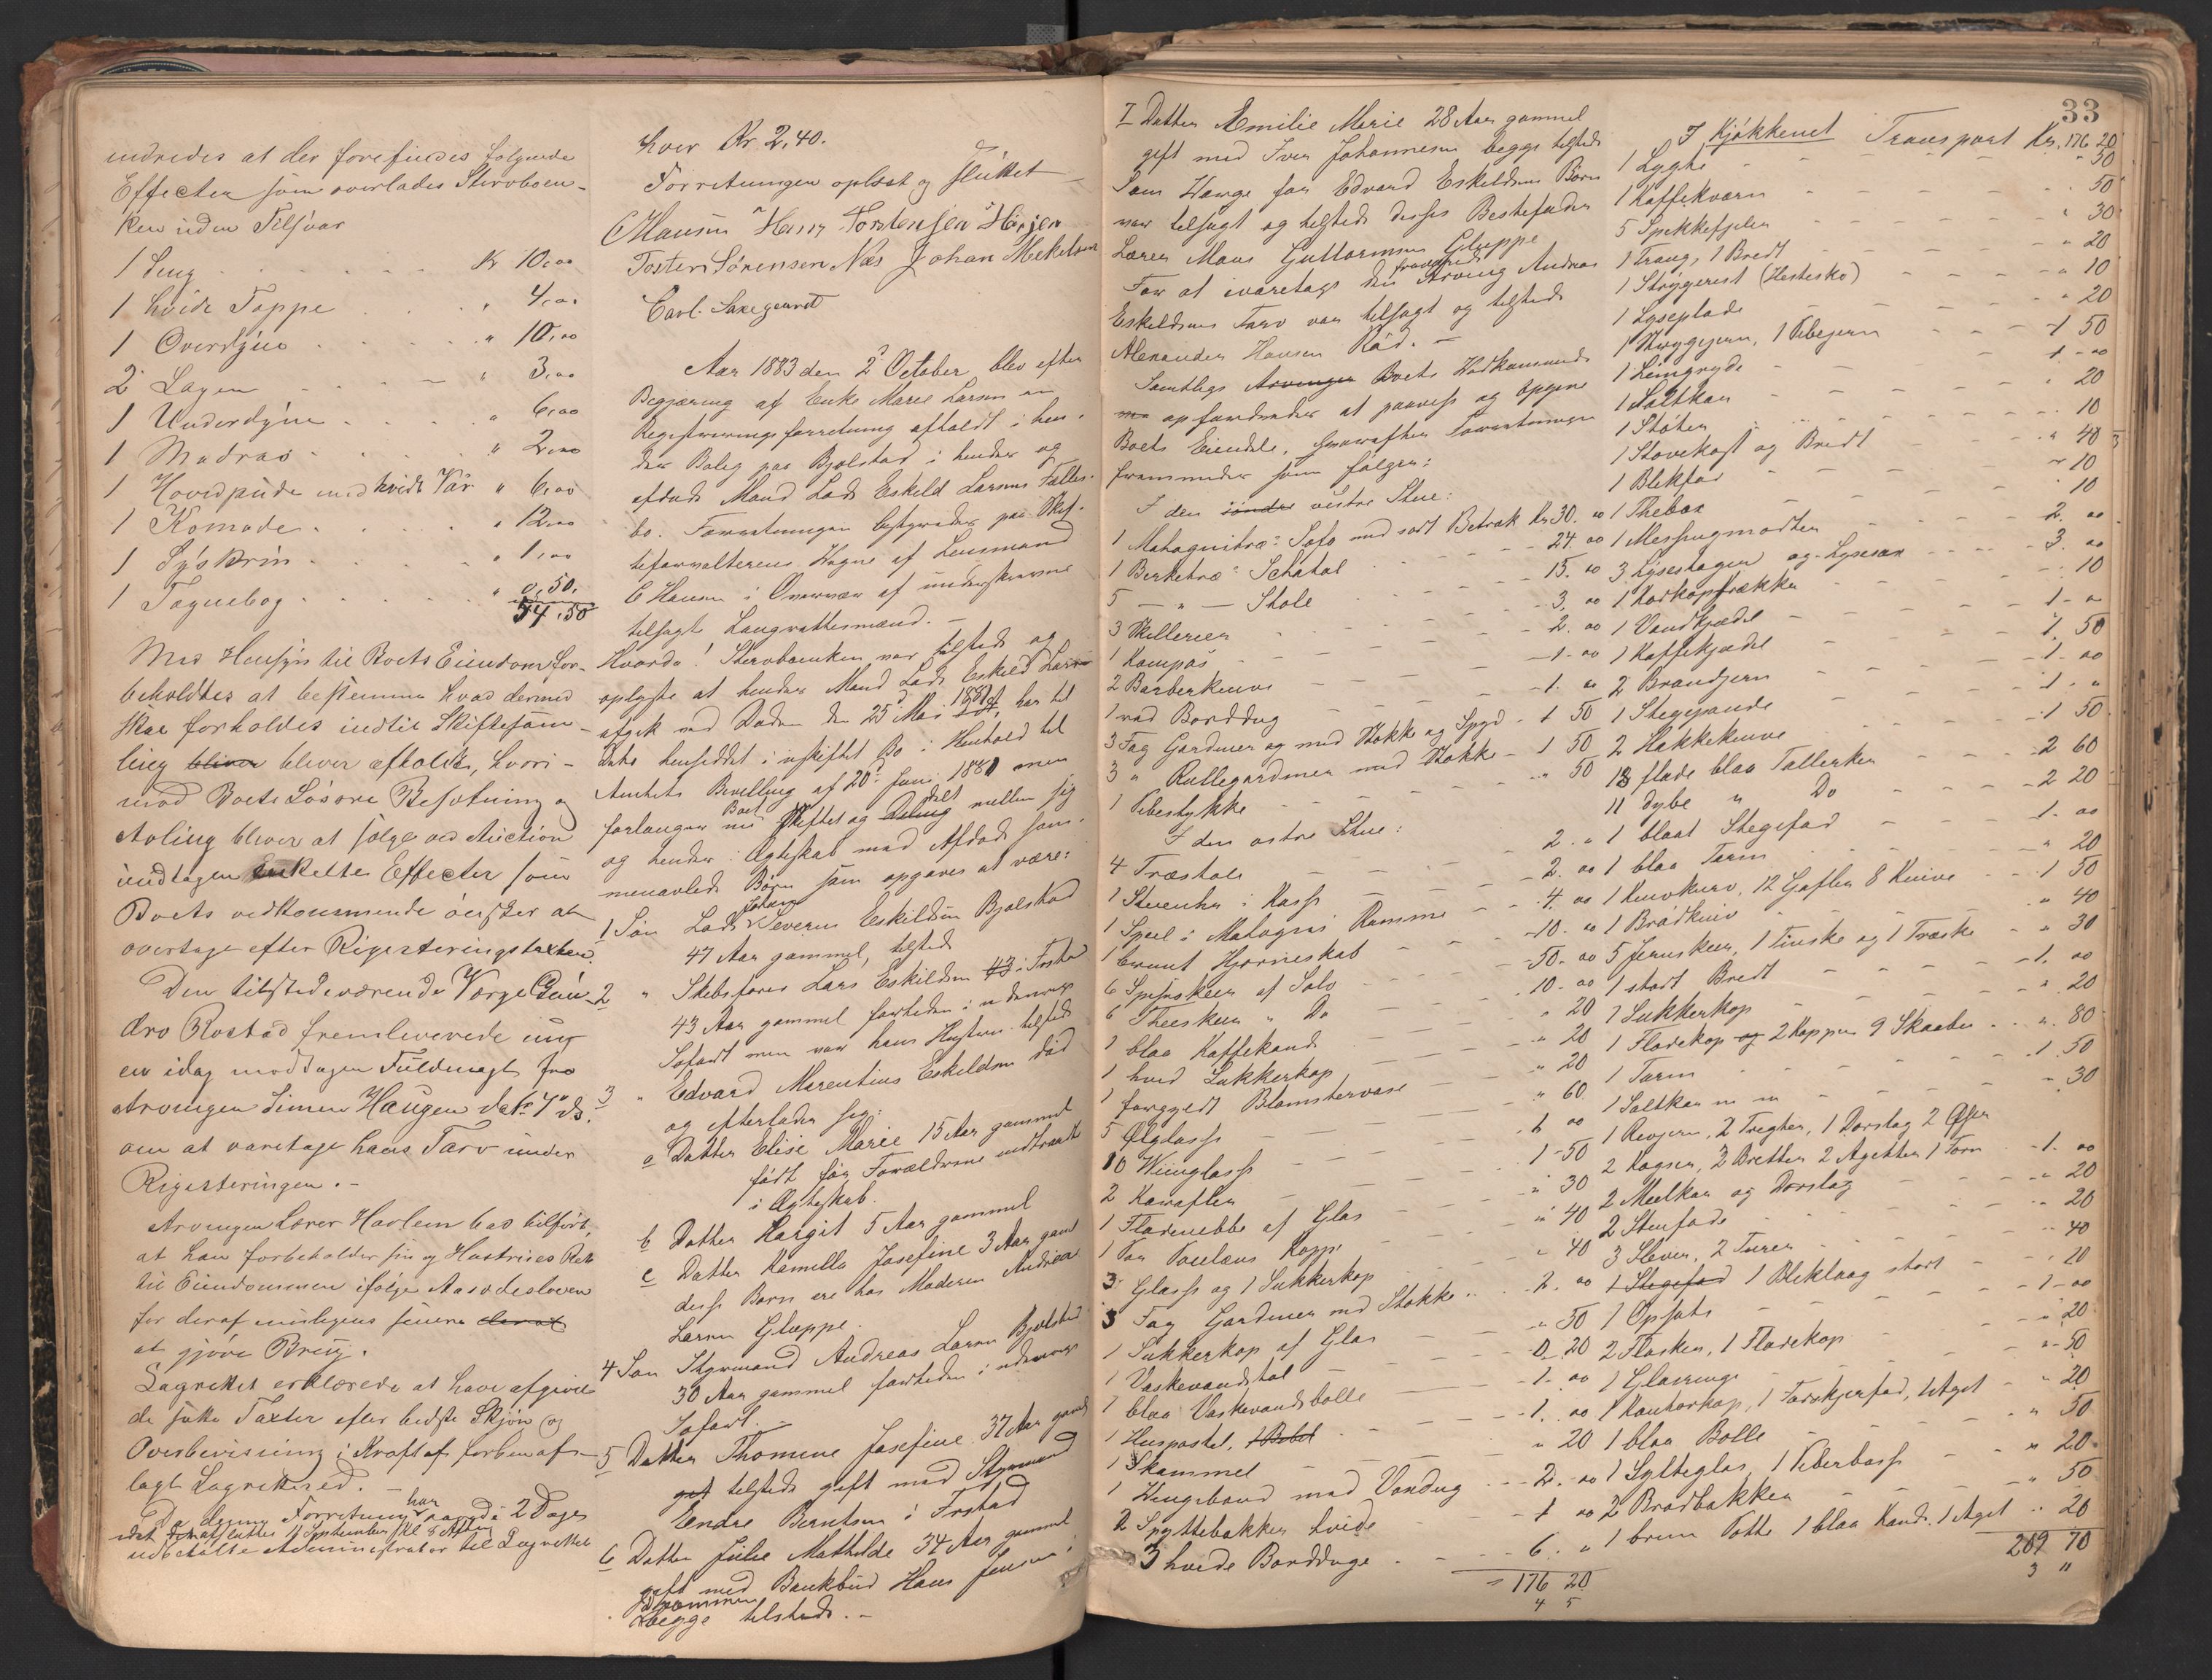 indredes at der forefindes følgende
Effecter som overlades Stervboen-
ken uden Tilsvar
1 Seng Kr 10,00
1 hvide Tæppe " 4,00
1 Overdyne " 10,00
2 Lagen " 3,00
1 Underdyne " 6,00
1 Madras " 2,00
1 Hovedpude med hvidt Vår " 6,00
1 Komode " 12,00
1 Syskrin " 1,00
1 Sognebog " 0,50
54,50
Med Hensyn til Boets Eiendom for-
beholdtes at bestemme hvad dermed
skal forholdes indtil Skiftesam-
ling bliver bliver afholdt, hvori-
mod Boets Løsøre Besætning og
Avling bliver at sælge ved Auction
undtagen enkelte Effecter som
Boets vedkommende ønsker at
overtage efter Registeringstaxten.
Den tilstedeværende Værge Gun-
dro Rostad fremleverede
en idag modtagen Fuldmagt fra
Arvingen Simen Haugen dat. 7de ds.
om at varetage hans Tarv under
Registeringen.-
Arvingen Lærer Harlem bad tilført,
at han forbeholder sin og Hustrues Ret
til Eiendommen ifølge Aasædesloven
for deraf muligens senere deraf
at gjøre Brug.
Lagrettet erklærede at have afgivet
de satte Taxter efter bedste Skjøn og
Overbevisning i Kraft af forhen af-
lagt Lagretteed.-
Da denne Forretning har 2 Dage
idet den afsluttes 11 September Kl 5 Aften
udbetalte Administrator til Lagrettet
hver Kr. 2,40.
Forretningen oplæst og sluttet
C Hansen Hans Torstensen Høisen
Tosten Sørensen Næs Johan Mekelsen
Carl Saxegaard
Aar 1883 den 2 October, blev efter
Begjæring af Enke Marie Larsen en
Registreringsforretning afholdt i hen-
des Bolig paa Bjølstad i hendes og
afdøde Mand Lods Eskild Larsens Fælles-
bo. Forretningen bestyredes paa Skif-
teforvalterens Vegne af Lensmand
C Hansen i Overvær af underskrevne
tilsagte Laugrettesmænd.-
Hvorda! Stervboenken var tilstede og
oplyste at hendes Mand Lods Eskild Larsen
afgik ved Døden den 25 Mai 1881, har til
Dato hensiddet i uskiftet Bo i Henhold til
Amtets Bevilling af 20 Juni 1881 men
forlanger nu Boet skiftet og delt mellem sig
og hendes i Ægteskab med Afdøde sam-
menavlede Børn som opgaves at være:
1 Søn Lods Johan Severin Eskildsen Bjølstad
47 Aar gammel, tilstede
2 " Skibsfører Lars Eskildsen 43 i Fosta
43 Aar gammel fortiden i udenrigs
Søfart men var hans Hustru tilstede
3 " Edvard Marentius Eskildsen død
og efterlader sig:
a Datter Elise Marie 15 Aar gammel
født før Forældrene indtraadte
i Ægteskab.
b Datter Hargit 5 Aar gammel
c Datter Kamilla Josefine 3 Aar gaml
disse Børn ere hos Moderen Andrea
Larsen Gluppe.
4 Søn Styrmand Andreas Larsen Bjølstad
30 Aar gammel fortiden i udenrigs
Søfart.-
5 Datter Thomine Josefine 37 Aar gaml
gift tilstede gift med Styrmand
Endre Berntsen i Frstad
6 Datter Julie Mathilde 34 Aar gammel
gift med Bankbud Hans Jensen i
Drammen
begge tilstede.-
33
7 Datter Emilie Marie 28 Aar gammel
gift med Iver Johannesen begge tilstede
Som Værge for Edvard Eskildsens Børn
var tilsagt og tilstede disses Bestefader
Lærer Mons Guttormsen Gluppe
For at ivaretage den fraværende Arving Andreas
Eskildsens Tarv var tilsagt og tilstede
Alexander Hansen Rød.-
Samtlige Arvinger Boets Vedkommende
opfordredes at paavise og opgive
Boets Eiendele, hvorefter Forretningen
fremmedes som følger:
I den søndre vestre Stue:
1 Mahognitræs Sofa med sort Betræk Kr 30. 00
1 Birketræs Schatol 24 00
5 — " — Stole 15. 00
3 Skillerier 3. 00
1 Kompas 2. 00
2 Barberknive 1- 00
1 rød Borddug 1. 00
3 Fag Gardiner og med Stokke og Spyd 1 50
3 " Rullegardiner med Stokke 1 50
1 Pibestykke " 50
I den østre Stue:
4 Træstole 2. "
1 Stueuhr i Kasse 2. 00
1 Speil i Mahogni Ramme 4. 00
1 brunt Hjørneskab 10. 00
6 Spiseskeer af Sølv 50. 00
6 Theeskeer " Do 10- 00
1 blaa Kaffekande " 20
1 hvid Sukkerkop " 20
1 forgyldt Blomstervase " 20
5 Ølglasse " 60
10 Viinglasse 1 00
2 Karafler 1 50
1 Flødenebbe af Glas " 30
1 Par Porcelæns Kopper " 40
3 Glasse og 1 Sukkerkop " 40
3 Fag Gardiner med Stokke 2. 00
1 Sukkerkop af Glas " 50
1 Vaskevandstol 0. 20
1 blaa Vaskevandsbolle 1- 00
1 Huspostil, 1 Bibel 1. 00
1 Skammel " 20
1 Hængebord med Voxdug 2. 00
2 Spyttebakker hvide 1 00
3 hvide Bordduge 6. "
176 20
4 5
I Kjøkkenet Transport Kr. 176 20
1 Lygte " 50
1 Kaffekværn " 50
5 Spekkefjeler " 30
1 Traug, 1 Bredt " 20
1 Strygerist (Hestesko) " 10
1 Lyseplade " 20
1 Strygejern, 1 Vibejern 1 50
1 Liimgryde 1 - 00
1 Saltkar " 20
1 Støter " 10
1 Stovekost og Bredt " 40
1 Blikfad " 10
1 Thebox " 10
1 Messingmorter 2. 00
3 Lysestager og Lysesax 3. 00
1 Korkoptrækker " 10
1 Vandkjedel 1- "
1 Kaffekjedel 1. 50
2 Brandjern 1- 00
1 Stegepande 1- "
2 Hakkeknive 1 50
18 flade blaa Tallerker 2 60
11 dybe " Do 2 20
1 blaat Stegefad 1. 00
1 blaa Terrin " 20
1 Knivkurv, 12 Gafler 8 Knive 1 50
1 Brødkniv " 40
5 Jernskeer, 1 Tinske og 1 Træske " 30
1 stort Bredt 1. 00
1 Sukkerkop " 20
1 Flødekop og 2 Kopper 9 Skaaler " 80
1 Terrin 1 50
1 Saltkar m m " 30
1 Rivjern, 2 Tregter, 1 Dørslag 2 Øser
2 Kagser, 2 Bretter 2 Agetter 1 Form 1. 00
2 Melkar og Dørslag " 20
2 Stenfade " 20
3 Slever, 2 Turer " 40
1 Stegefad 1 Bliklaag stort " 10
1 Opsats 1- 00
2 Flasker, 1 Flødekop " 20
1 Glasringe " 50
1 Kontorkop, 1 Forskjærfad, 1 Aget " 20
1 blaa Bolle " 50
1 Sylteglas, 1 Peberbøsse " 20
2 Brødbakker " 50
1 brun Potte 1 blaa Kande 1 Aget " 20
209 70
3 "